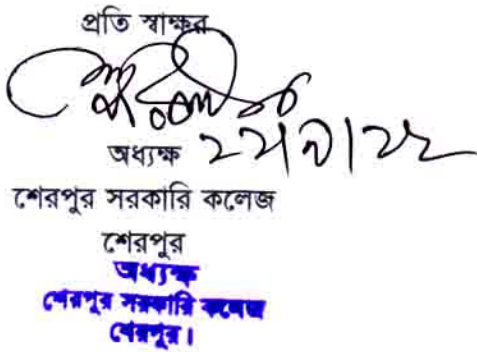 প্রতি স্বাক্ষর
অধ্যক্ষ
শেরপুর সরকারি কলেজ
শেরপুর
অধ্যক্ষ
শেরপুর সরকারি কলেজ
শেরপুর।